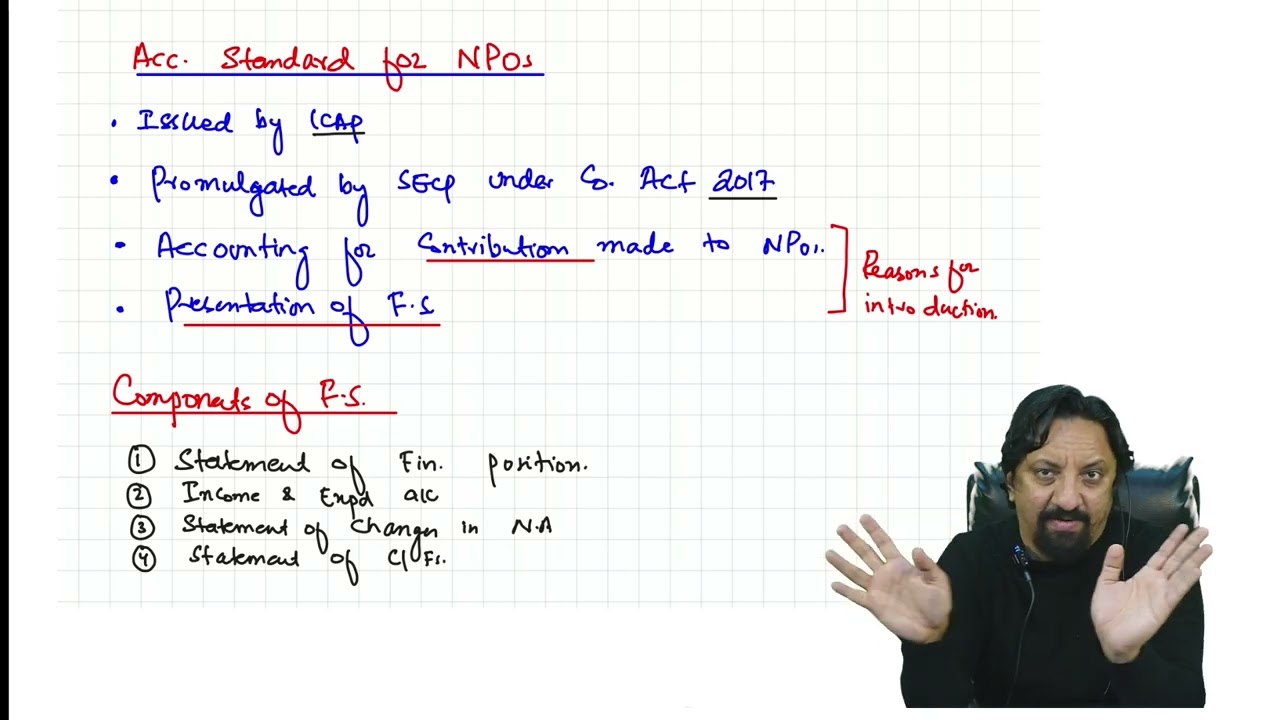 Acc. Standard for NPOs
• Issued by ICAP
• Promulgated by SECP under Co. Act 2017
• Accounting for Contribution made to NPOs.
• Presentation of F.S
Reasons for
introduction.
Components of F.S.
① Statement of Fin. position.
② Income & Expd a/c
③ Statement of changes in N.A
④ Statement of C/Fs.